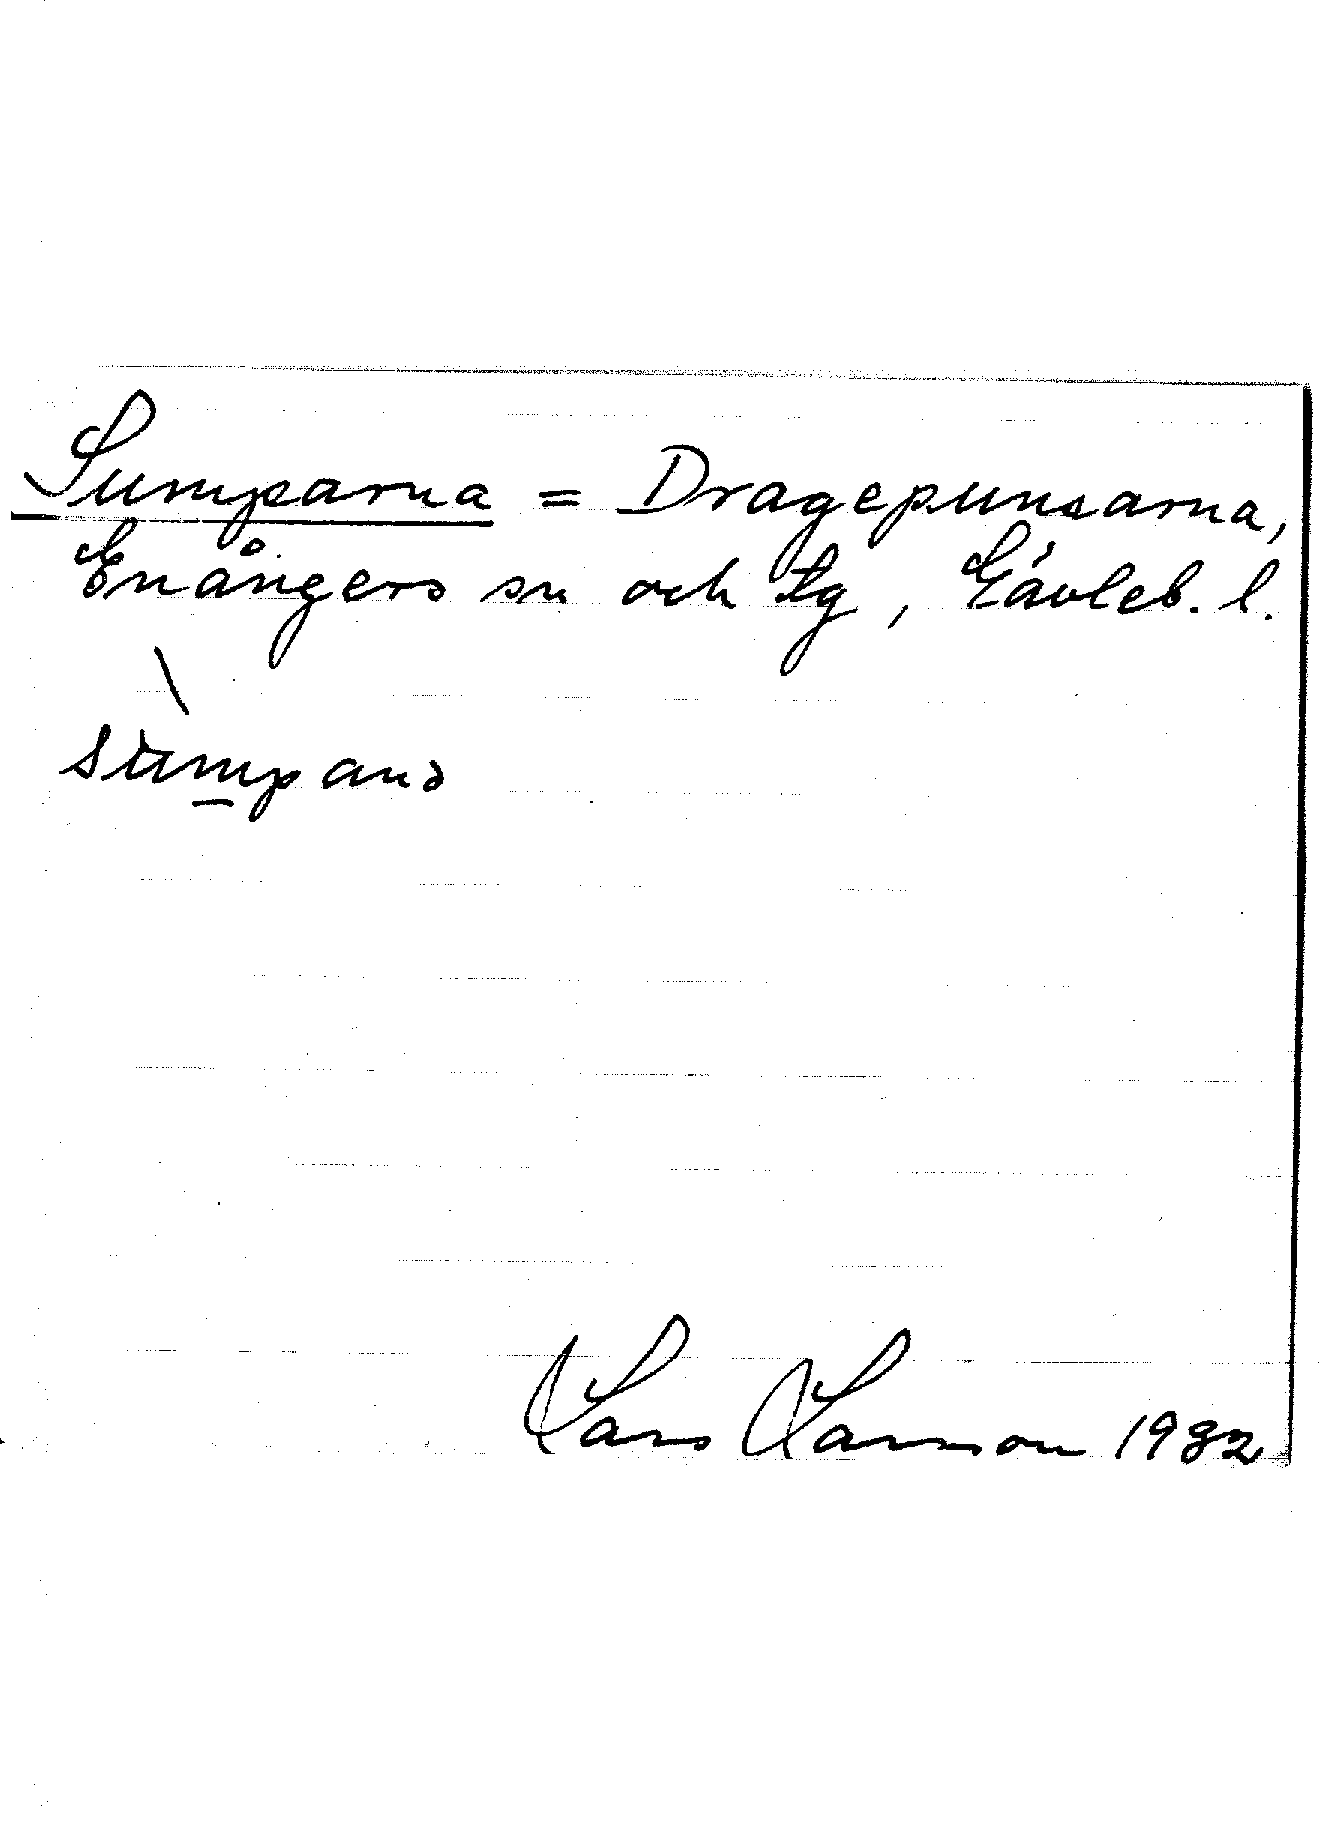 Sumparna = Dragepunsarna,
Enångers sn och tg, Gävleb. l.
\
sumpanɔ
Lars Larsson 1982